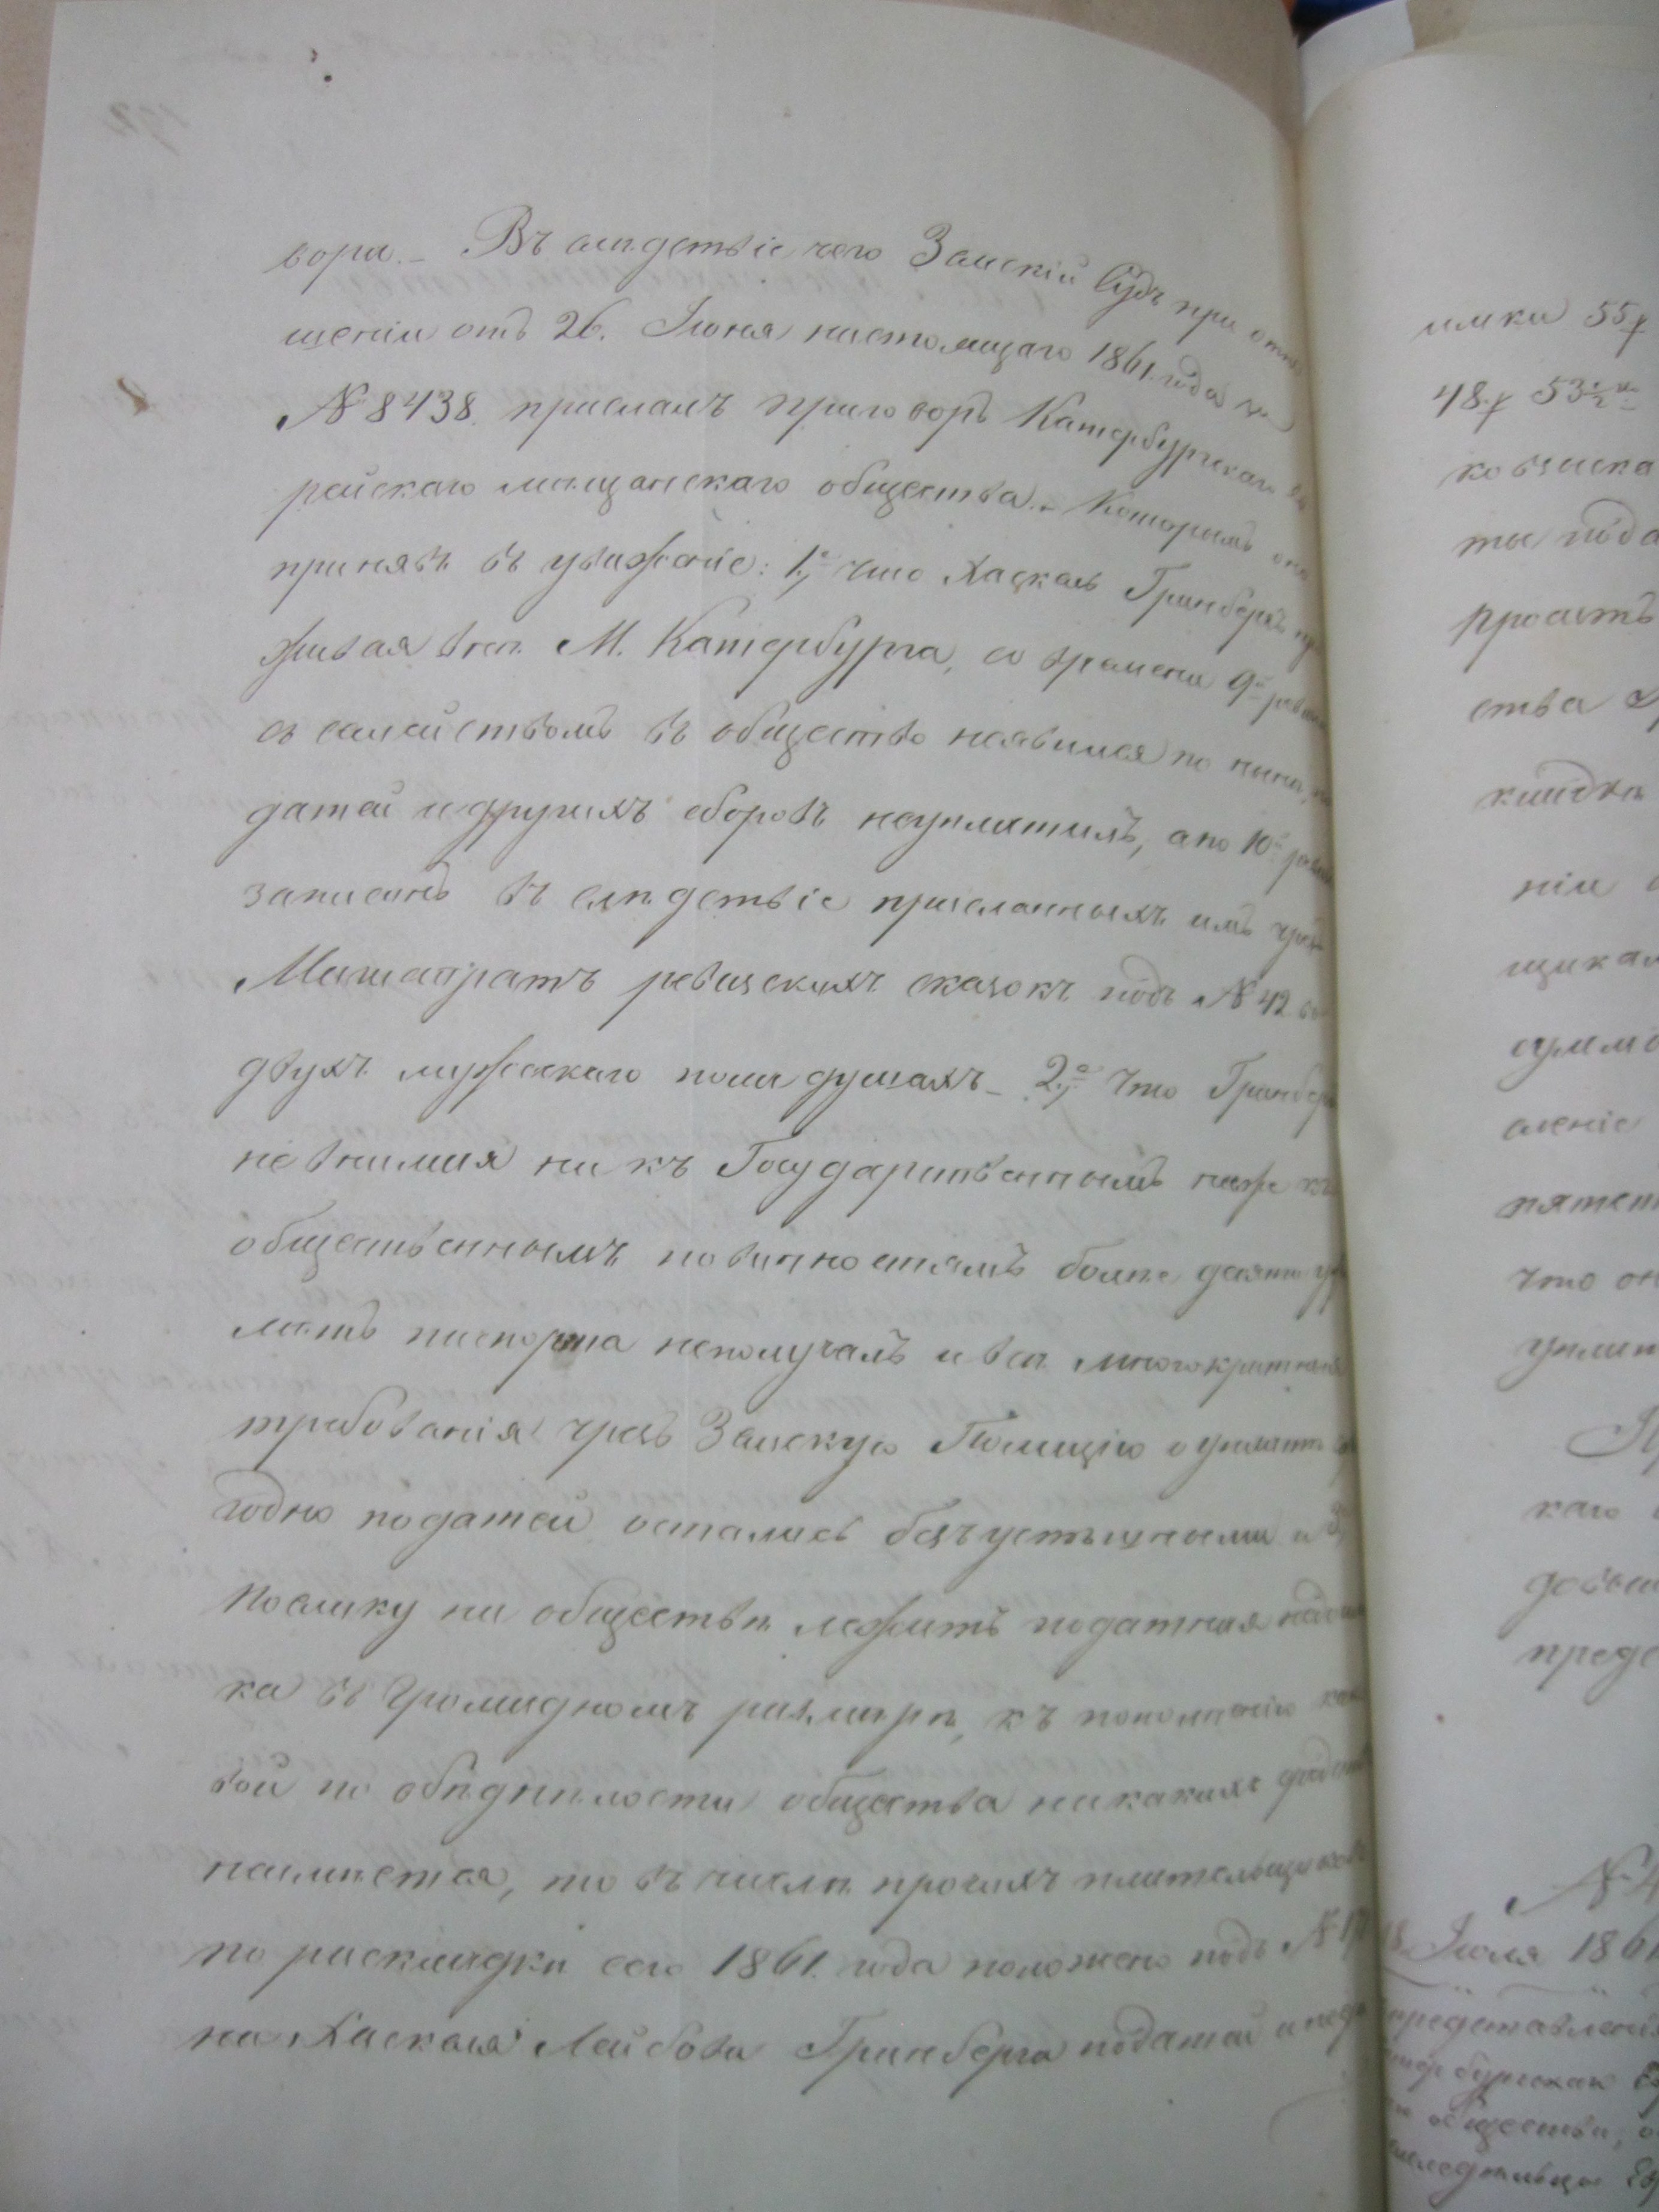 вора. – Въ слѣдствіе чего Земскій Судъ при отно
шеніи отъ 26. Іюня настоящаго 1861. года за
№ 8438. прислалъ приговоръ Катербургскаго Ев
рейскаго мѣщанскаго общества. Которымъ оно
принявъ въ уваженіе: 1.е что Хаскель Гринбергъ про
живая внѣ М. Катербурга, со времени 9й ревизіи
съ семействомъ въ общество неявился по нынѣ, по
датей и другихъ сборовъ неуплатилъ, а по 10й ревизіи
записанъ въ слѣдствіе присланныхъ имъ чрезъ
Магистратъ ревизскихъ сказокъ подъ № 42 въ
двухъ мужескаго пола душахъ – 2.е Что Гринбергъ
невнимая ни къ Государственнымъ ниже къ
общественнымъ повинностямъ болѣе десяти
лѣтъ паспорта неполучалъ и всѣ многократныя
требованія чрезъ Земскую Полицію о уплатѣ
годно податей остались безъуспѣшными и 3е
Поелику на обществѣ лежитъ податная недоим
ка въ громадномъ размѣрѣ, къ пополненію како
вой по обѣднѣлости общества никакихъ средствъ
неимѣется, то въ числѣ прочихъ плательщиковъ
по раскладкѣ сего 1861. года положено подъ №
на Хаскеля Лейбова Гринберга податей и недо
имки 55 р
48 р 53½ к
ко взыска
ты пода
проситъ
ства
ніи
щикам
сумм
пятен
что он
каго
предс
№ 4
18 Іюля 1861
представлен
общества,